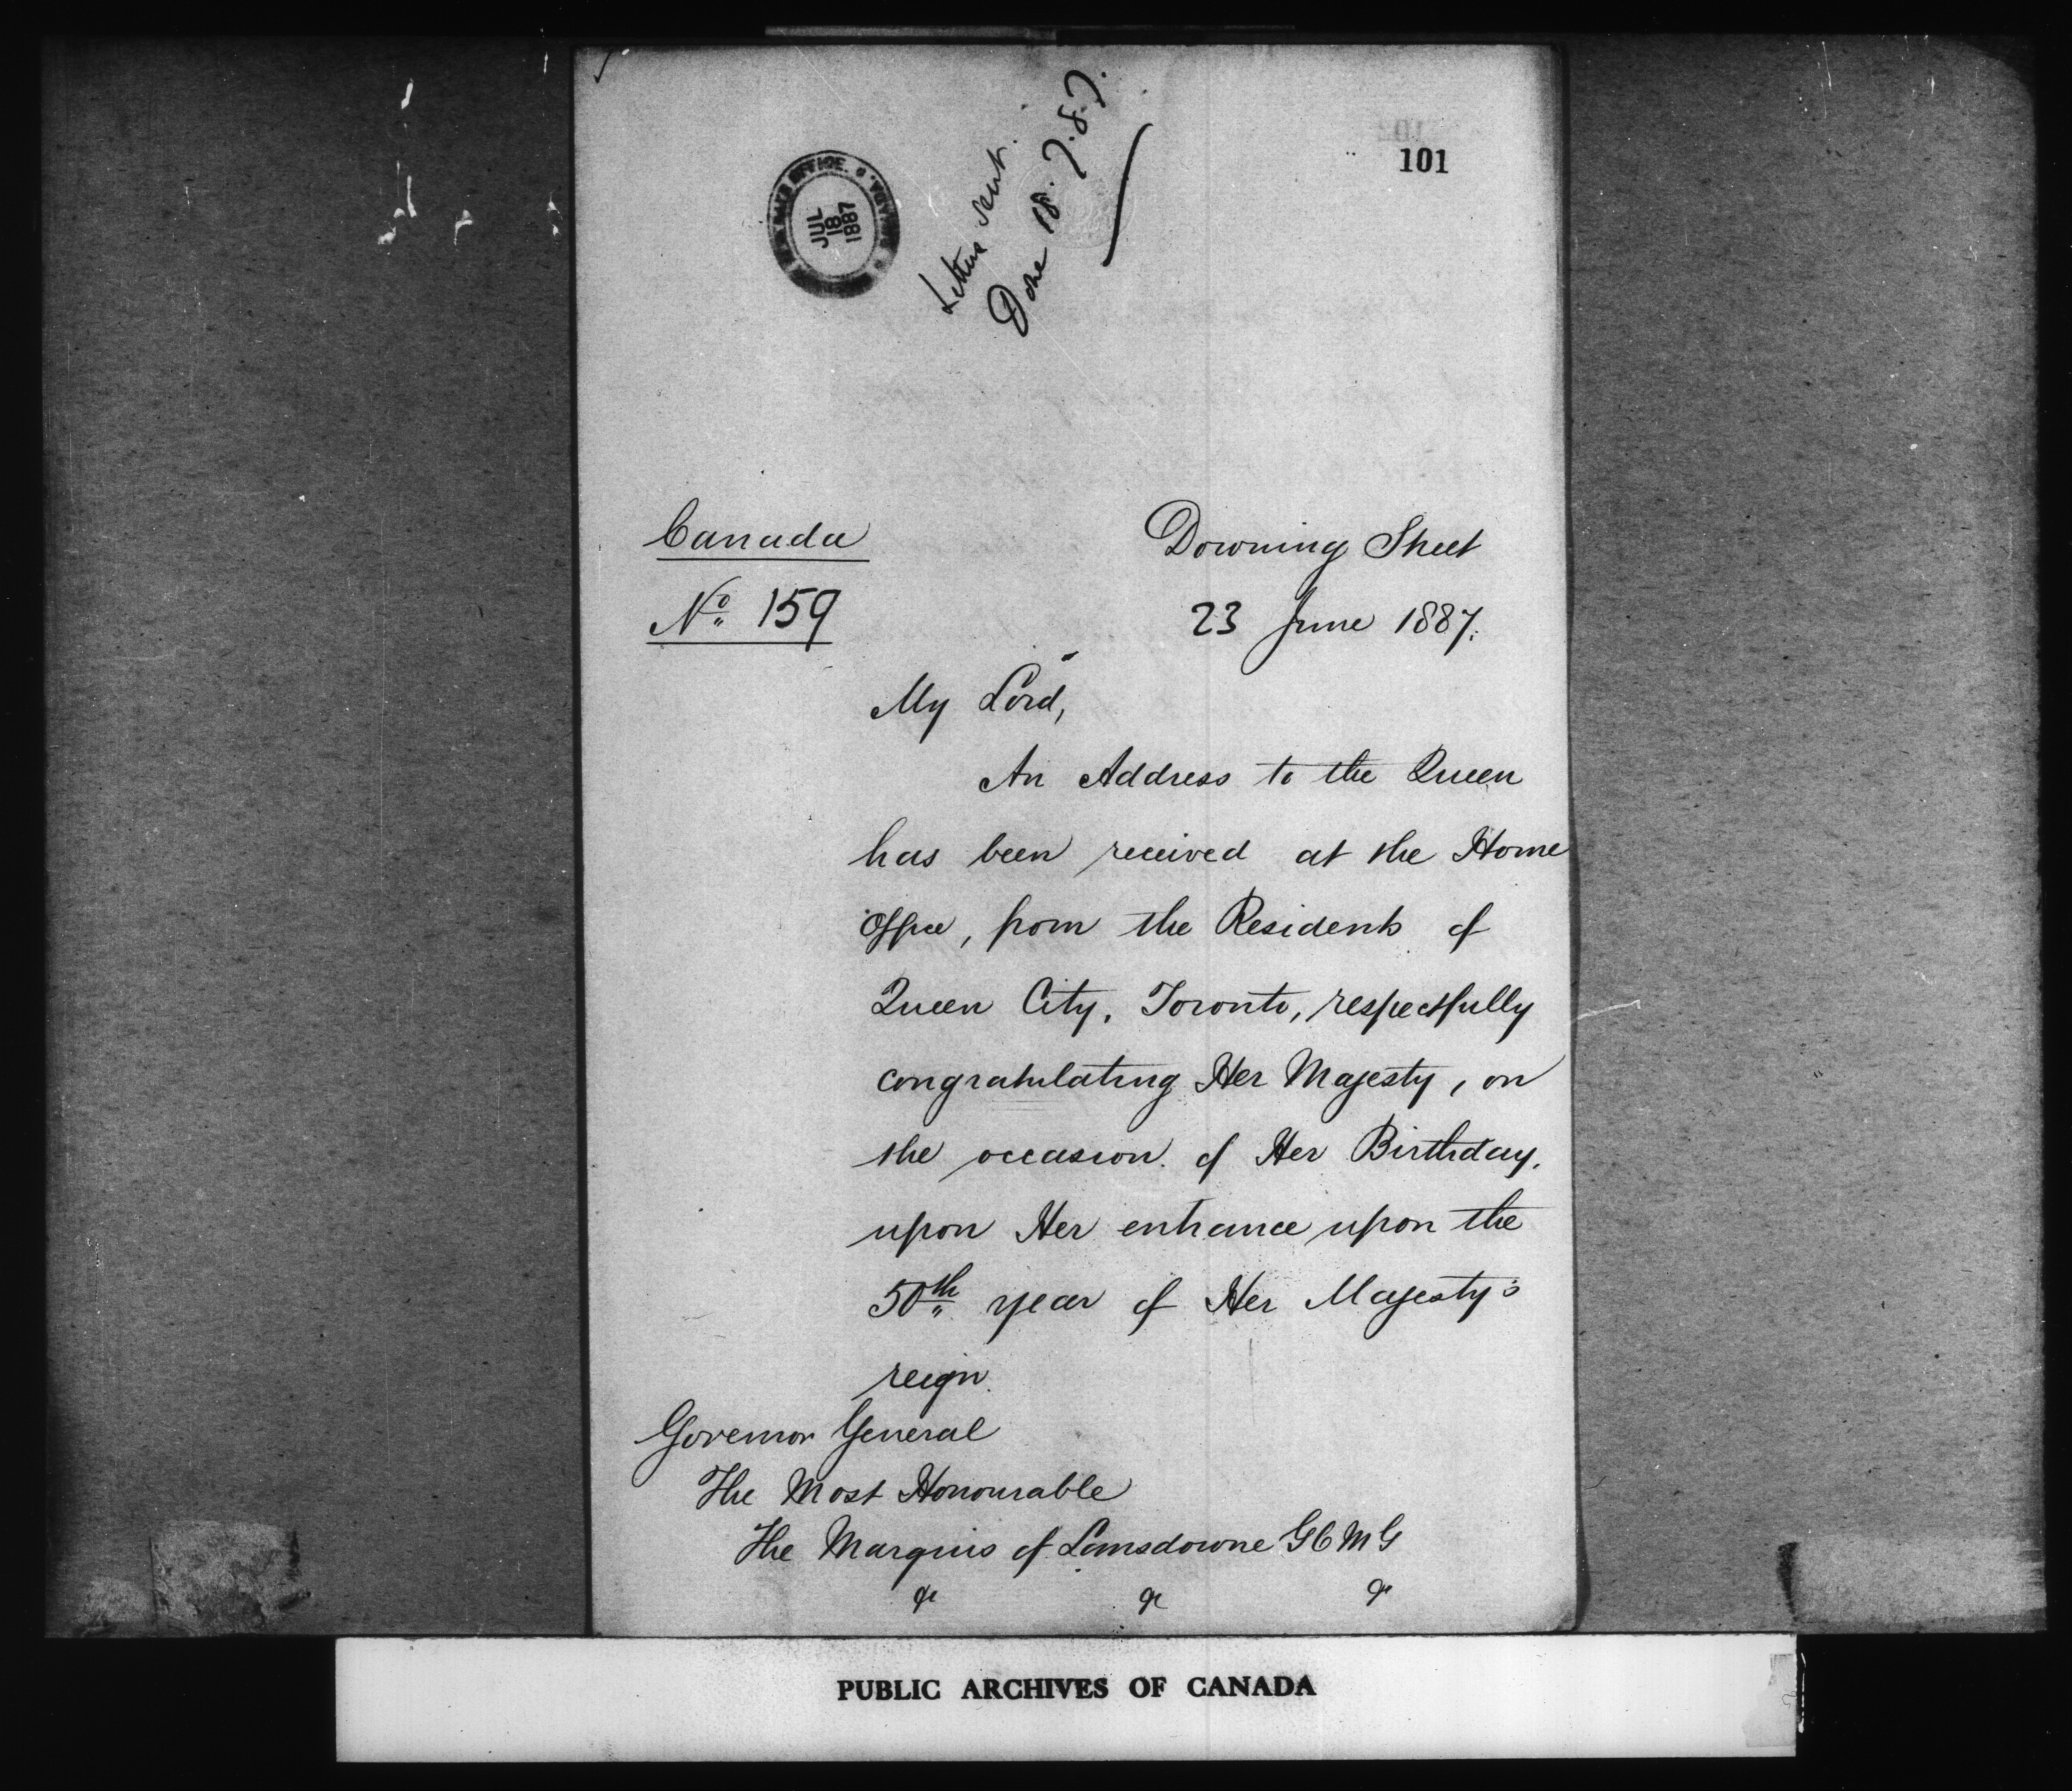 101
JUL
18
1887
Letter sent.
Done 18.7.87.
Canada
Nº 159
Downing Street
23 June 1887.
My Lord,
An Address to the Queen
has been received at the Home
Office, from the Residents of
Queen City, Toronto, respectfully
congratulating Her Majesty, on
the occasion of Her Birthday,
upon Her entrance upon the
50th year of Her Majesty's
reign.
Governor General
The Most Honourable
The Marquis of Lansdowne GCMG
&c &c &c
PUBLIC ARCHIVES OF CANADA